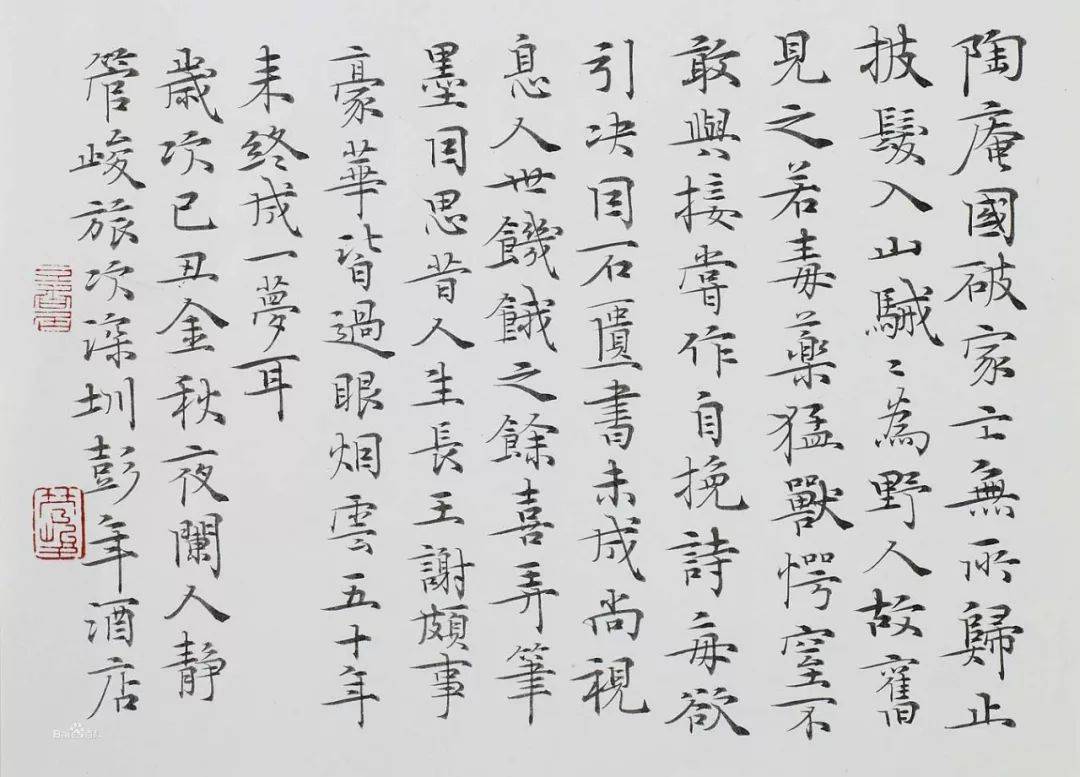 陶庵國破家亡無所歸止
披髮入山駴〻為野人故舊
見之若毒藥猛獸愕窒不
敢與接嘗作自挽詩每欲
引决因石匱書未成尚視
息人世饑餓之餘喜弄筆
墨因思昔人生長王謝頗事
豪華皆過眼烟雲五十年
来終成一夢耳
歲次己丑金秋夜闌人靜
管峻旅次深圳彭年酒店